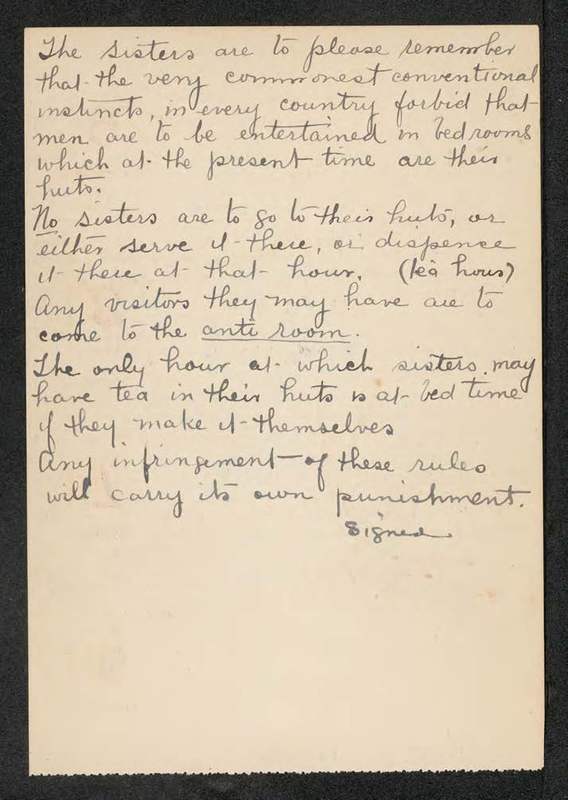 The sisters are to please remember
that the very commonest conventional
instincts, in every country forbid that
men are to be entertained in bedrooms
which at the present time are their
huts.
No sisters are to go to their huts, or
either serve it there, or dispence
it there at that hour. (tea hour)
Any visitors they may have are to
come to the anti room.
The only hour at which sisters may
have tea in their huts is at bed time
if they make it themselves
Any infringement of these rules
will carry its own punishment.
Signed